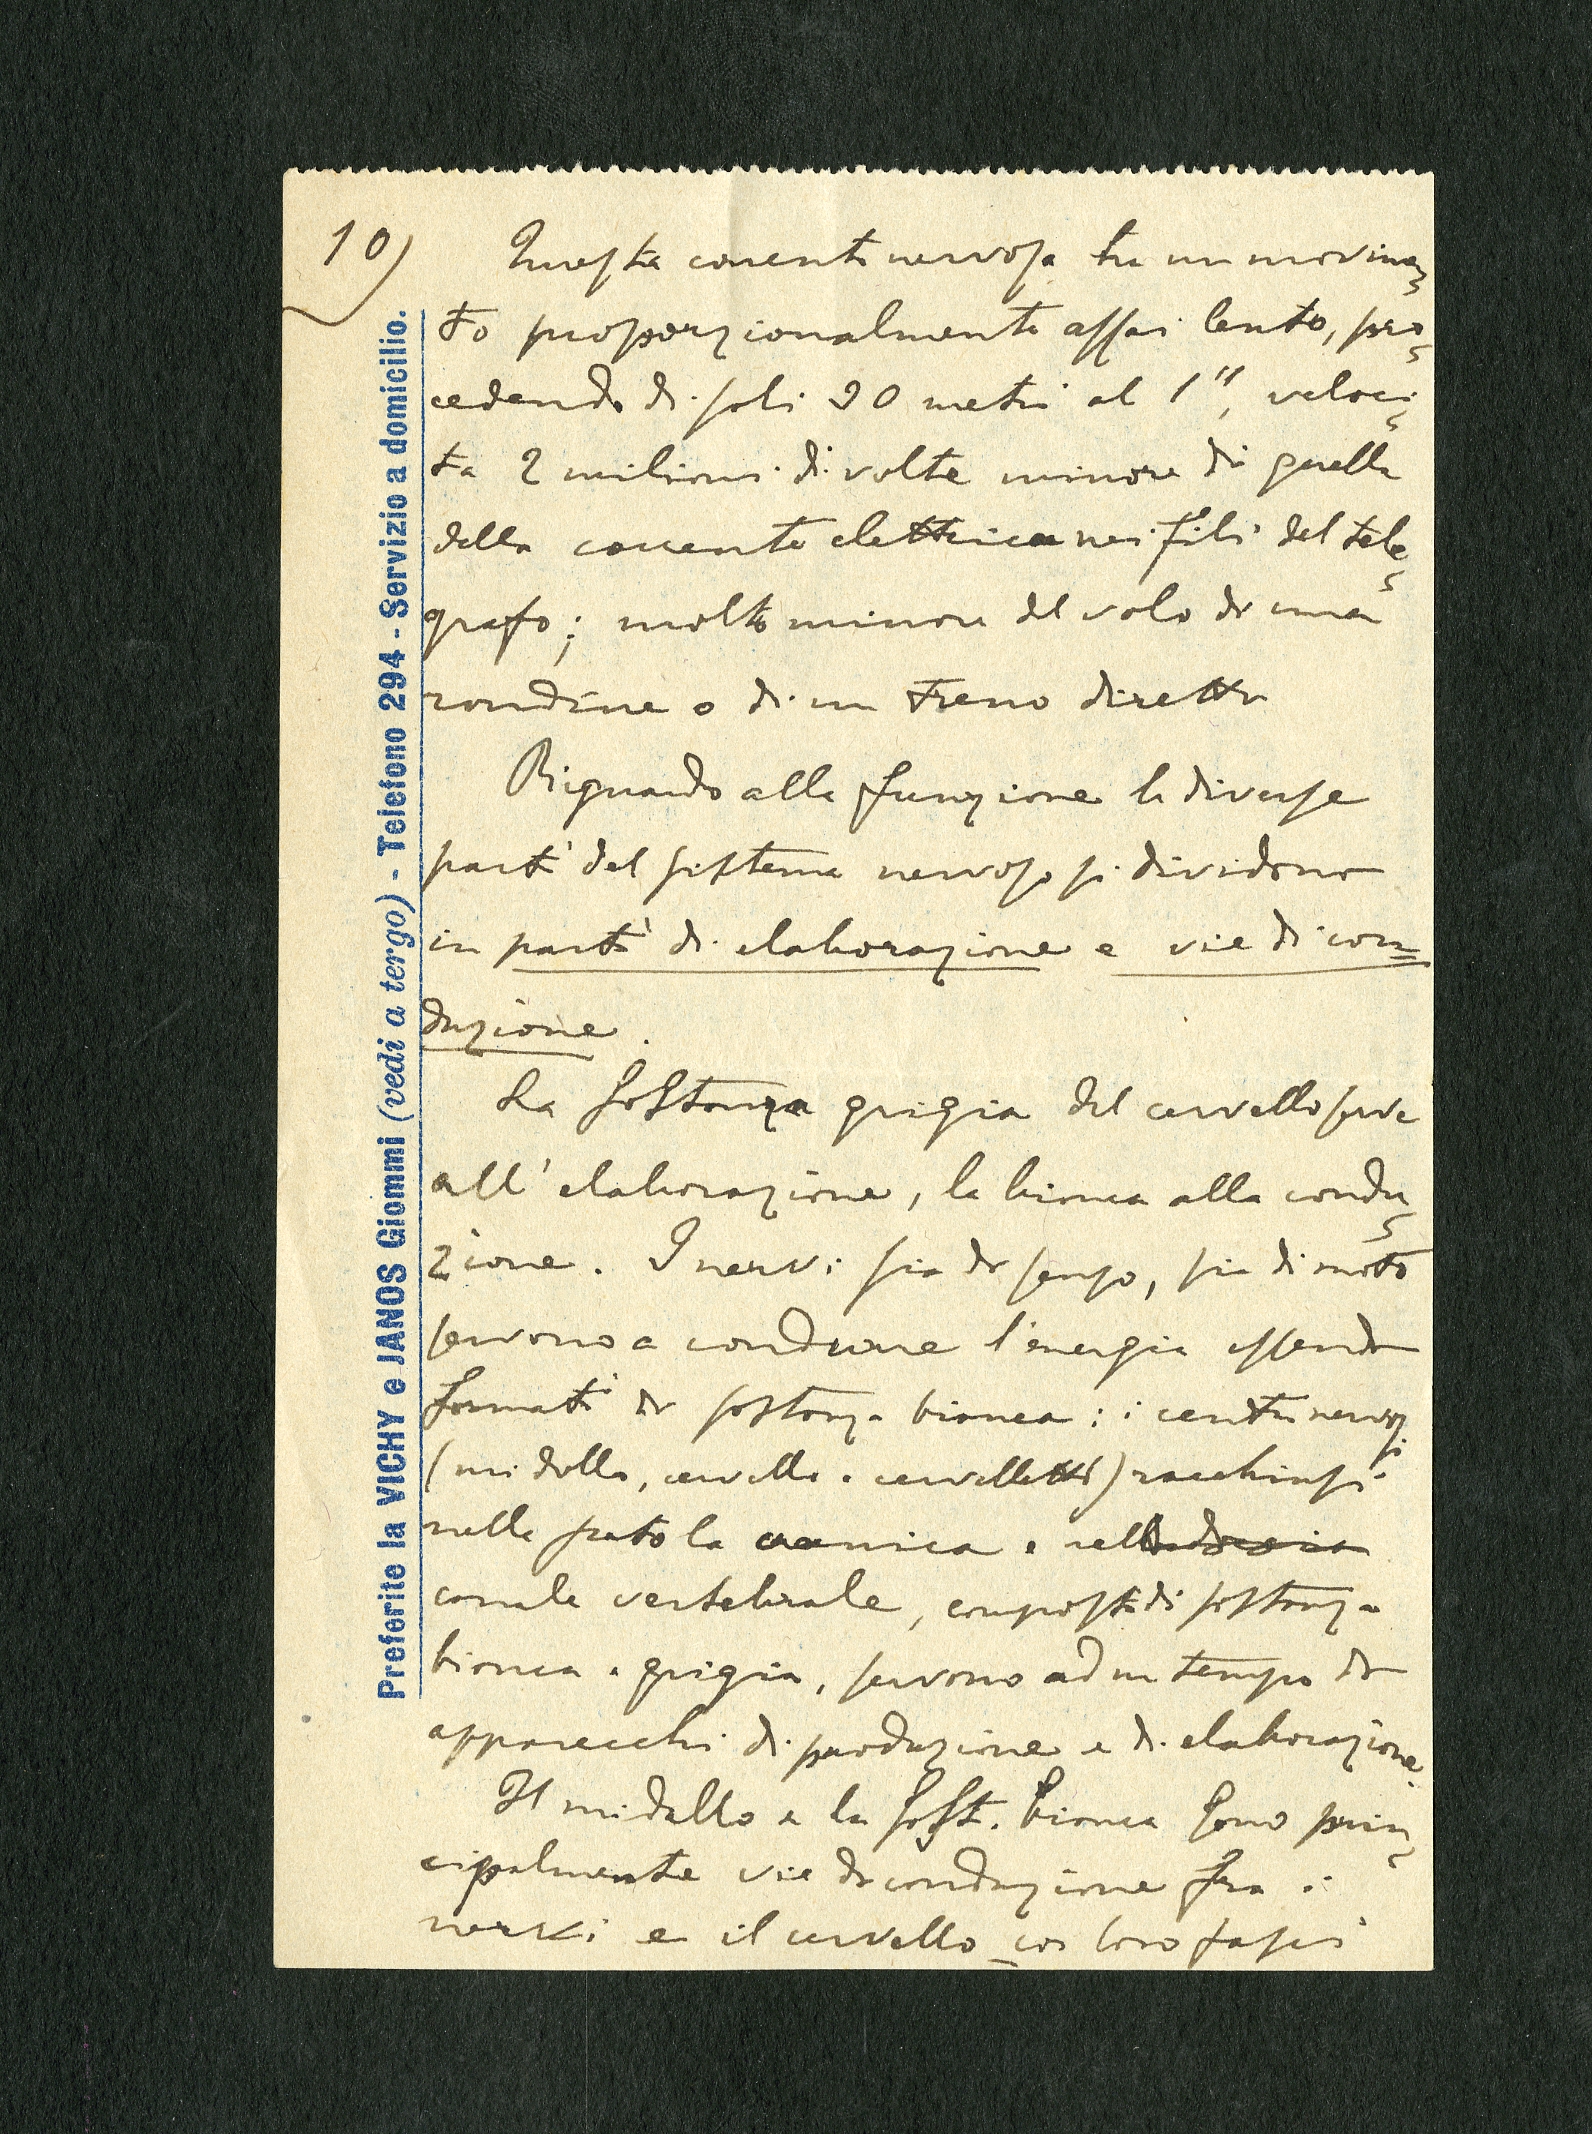 10)
Questa corrente nervosa ha un movimen-
to proporzionalmente assai lento, pro-
cedendo di soli 30 metri al 1", veloci-
tà 2 milioni di volte minore di quella
della corrente elettrica nei fili del tele-
grafo; molto minore del volo di una
rondine o di un treno diretto
Riguardo alla funzione le diverse
parti del sistema nervoso si dividono
in parti di elaborazione e vie di con=
duzione.
La sostanza grigia del cervello serve
all'elaborazione, la bianca alla condu-
zione. I nervi sia di senso, sia di moto
servono a condurre l'energia essendo
formati di sostanza bianca; i centri nervosi
(midollo, cervello e cervelletto) racchiusi
nella scatola cranica e nell
canale vertebrale, composti di sostanza
bianca e grigia, servono ad un tempo di
apparecchi di produzione e di elaborazione.
Il midollo e la sost. bianca sono prin-
cipalmente vie di conduzione fra i
nervi e il cervello coi loro fasci
Preferite la VICHY e JANOS Giommi (vedi a tergo) - Telefono 294 - Servizio a domicilio.